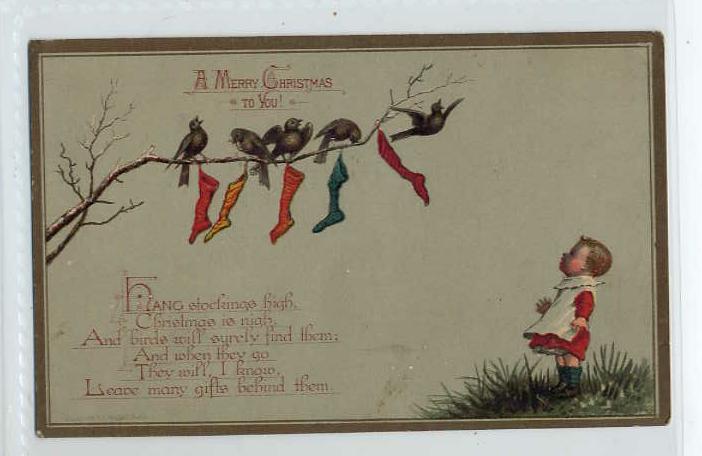 A MERRY CHRISTMAS
TO YOU!
HANG stockings high,
Christmas is nigh,
And birds will surely find them;
And when they go
They will, I know,
Leave many gifts behind them.